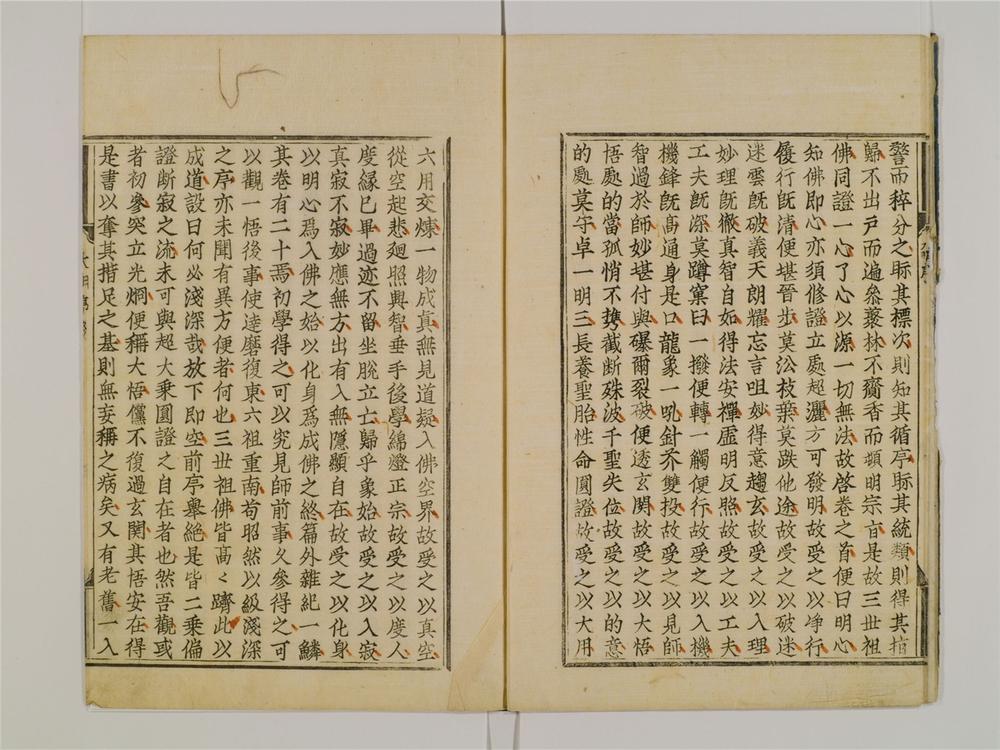 警而稡分之眎其標次則知其循序眎其統類則得其㨖
歸不出戶而遍叅叢林不爇香而頓明宗旨是故三世祖
佛同證一心了心以源一切無法故啓卷之首便曰明心
知佛即心亦須修證立處超灑方可發明故受之以淨行
履行旣清便堪晉步莫㳂枝葉莫跌他途故受之以破迷
迷雲旣破義天朗耀忘言咀妙得意趨玄故受之以入理
妙理旣徹真智自如得法安禪虛明反照故受之以工夫
工夫旣深莫蹲窠臼一撥便轉一觸便行故受之以入機
機鋒旣髙通身是口龍象一吼針芥雙投故受之以見師
智過於師妙堪付與㬥爾裂破便透玄関故受之以大悟
悟處的當孤悄不携截斷殊波千聖失位故受之以的意
的處莫守卓一明三長養聖胎性命圓證故受之以大用
六用交煉一物成真無見道疑入佛空界故受之以真空
從空起悲廻照與智垂手後學綿燈正宗故受之以度人
度緣已畢過迹不留坐脫立亡歸乎象始故受之以入寂
真寂不寂妙應無方出有入無隱顯自在故受之以化身
以明心爲入佛之始以化身爲成佛之終篇外雜紀一鱗
其卷有二十焉初學得之可以究見師前事乆參得之可
以觀一悟後事使達磨復東六祖重南苟昭然以級淺深
之序亦未聞有異方便者何也三世祖佛皆髙〻躋此以
成道設曰何必淺深哉放下即空前序舉絶是皆二乘偏
證斷寂之流未可與超大乘圓證之自在者也然吾觀或
者初參突立光烱便稱大悟儻不復過玄関其悟安在得
是書以奪其指足之基則無妄稱之病矣又有老舊一入